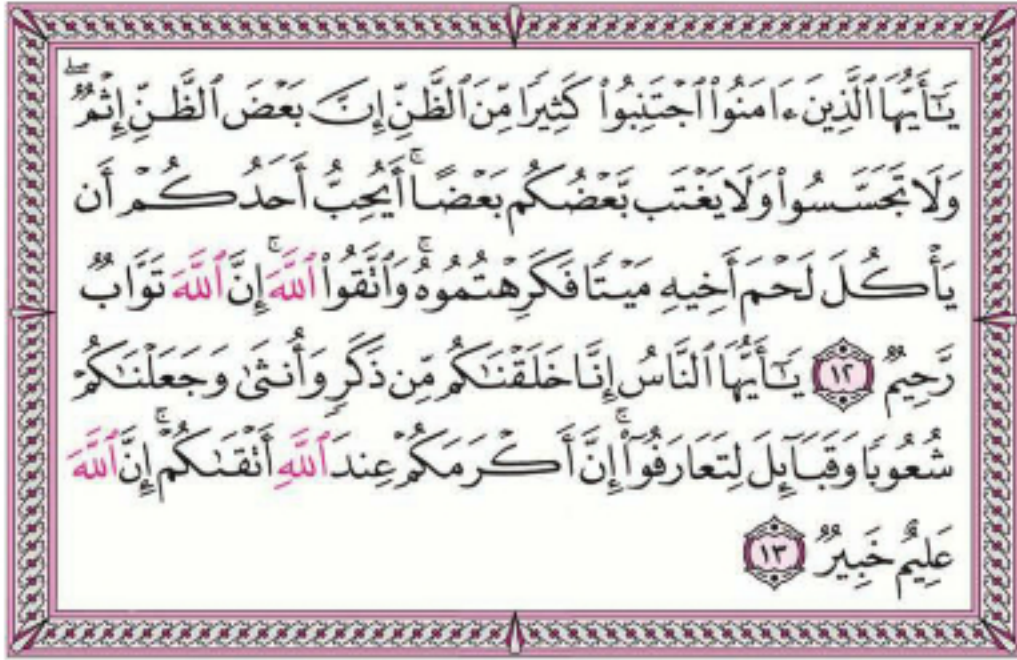 يَـٰٓأَيُّهَا ٱلَّذِينَ ءَامَنُوا۟ ٱجْتَنِبُوا۟ كَثِيرًا مِّنَ ٱلظَّنِّ إِنَّ بَعْضَ ٱلظَّنِّ إِثْمٌ ۖ
وَلَا تَجَسَّسُوا۟ وَلَا يَغْتَب بَّعْضُكُم بَعْضًا ۚ أَيُحِبُّ أَحَدُكُمْ أَن
يَأْكُلَ لَحْمَ أَخِيهِ مَيْتًا فَكَرِهْتُمُوهُ ۚ وَٱتَّقُوا۟ ٱللَّهَ ۚ إِنَّ ٱللَّهَ تَوَّابٌ
رَّحِيمٌ ١٢ يَـٰٓأَيُّهَا ٱلنَّاسُ إِنَّا خَلَقْنَـٰكُم مِّن ذَكَرٍ وَأُنثَىٰ وَجَعَلْنَـٰكُمْ
شُعُوبًا وَقَبَآئِلَ لِتَعَارَفُوٓا۟ ۚ إِنَّ أَكْرَمَكُمْ عِندَ ٱللَّهِ أَتْقَىٰكُمْ ۚ إِنَّ ٱللَّهَ
عَلِيمٌ خَبِيرٌ ١٣